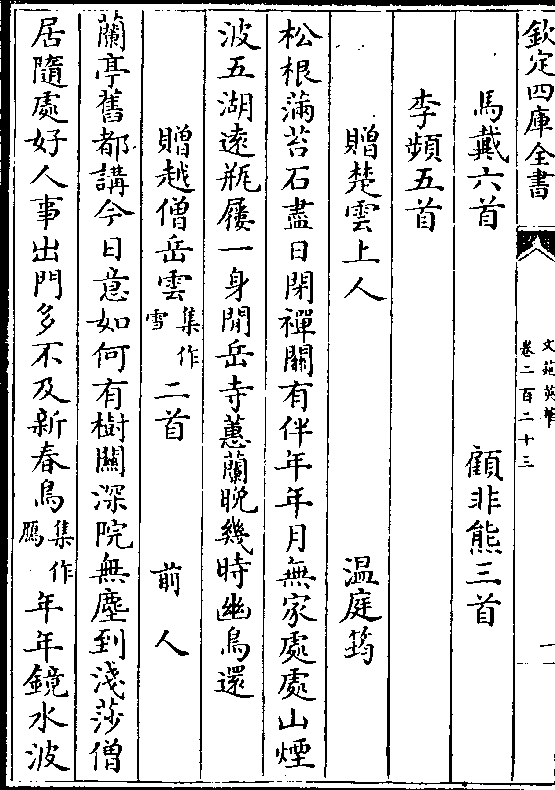 欽定四庫全書
文苑英華
卷二百二十三
馬戴六首 顧非熊三首
李頻五首
贈楚雲上人 温庭筠
松根滿苔石盡日閑禪關有伴年年月無家處處山煙
波五湖遠瓶屨一身閒岳寺蕙蘭晚幾時幽鳥還
贈越僧岳雲集作雪二首 前人
蘭亭舊都講今日意如何有樹關深院無塵到淺莎僧
居隨處好人事出門多不及新春鳥集作鴈年年鏡水波